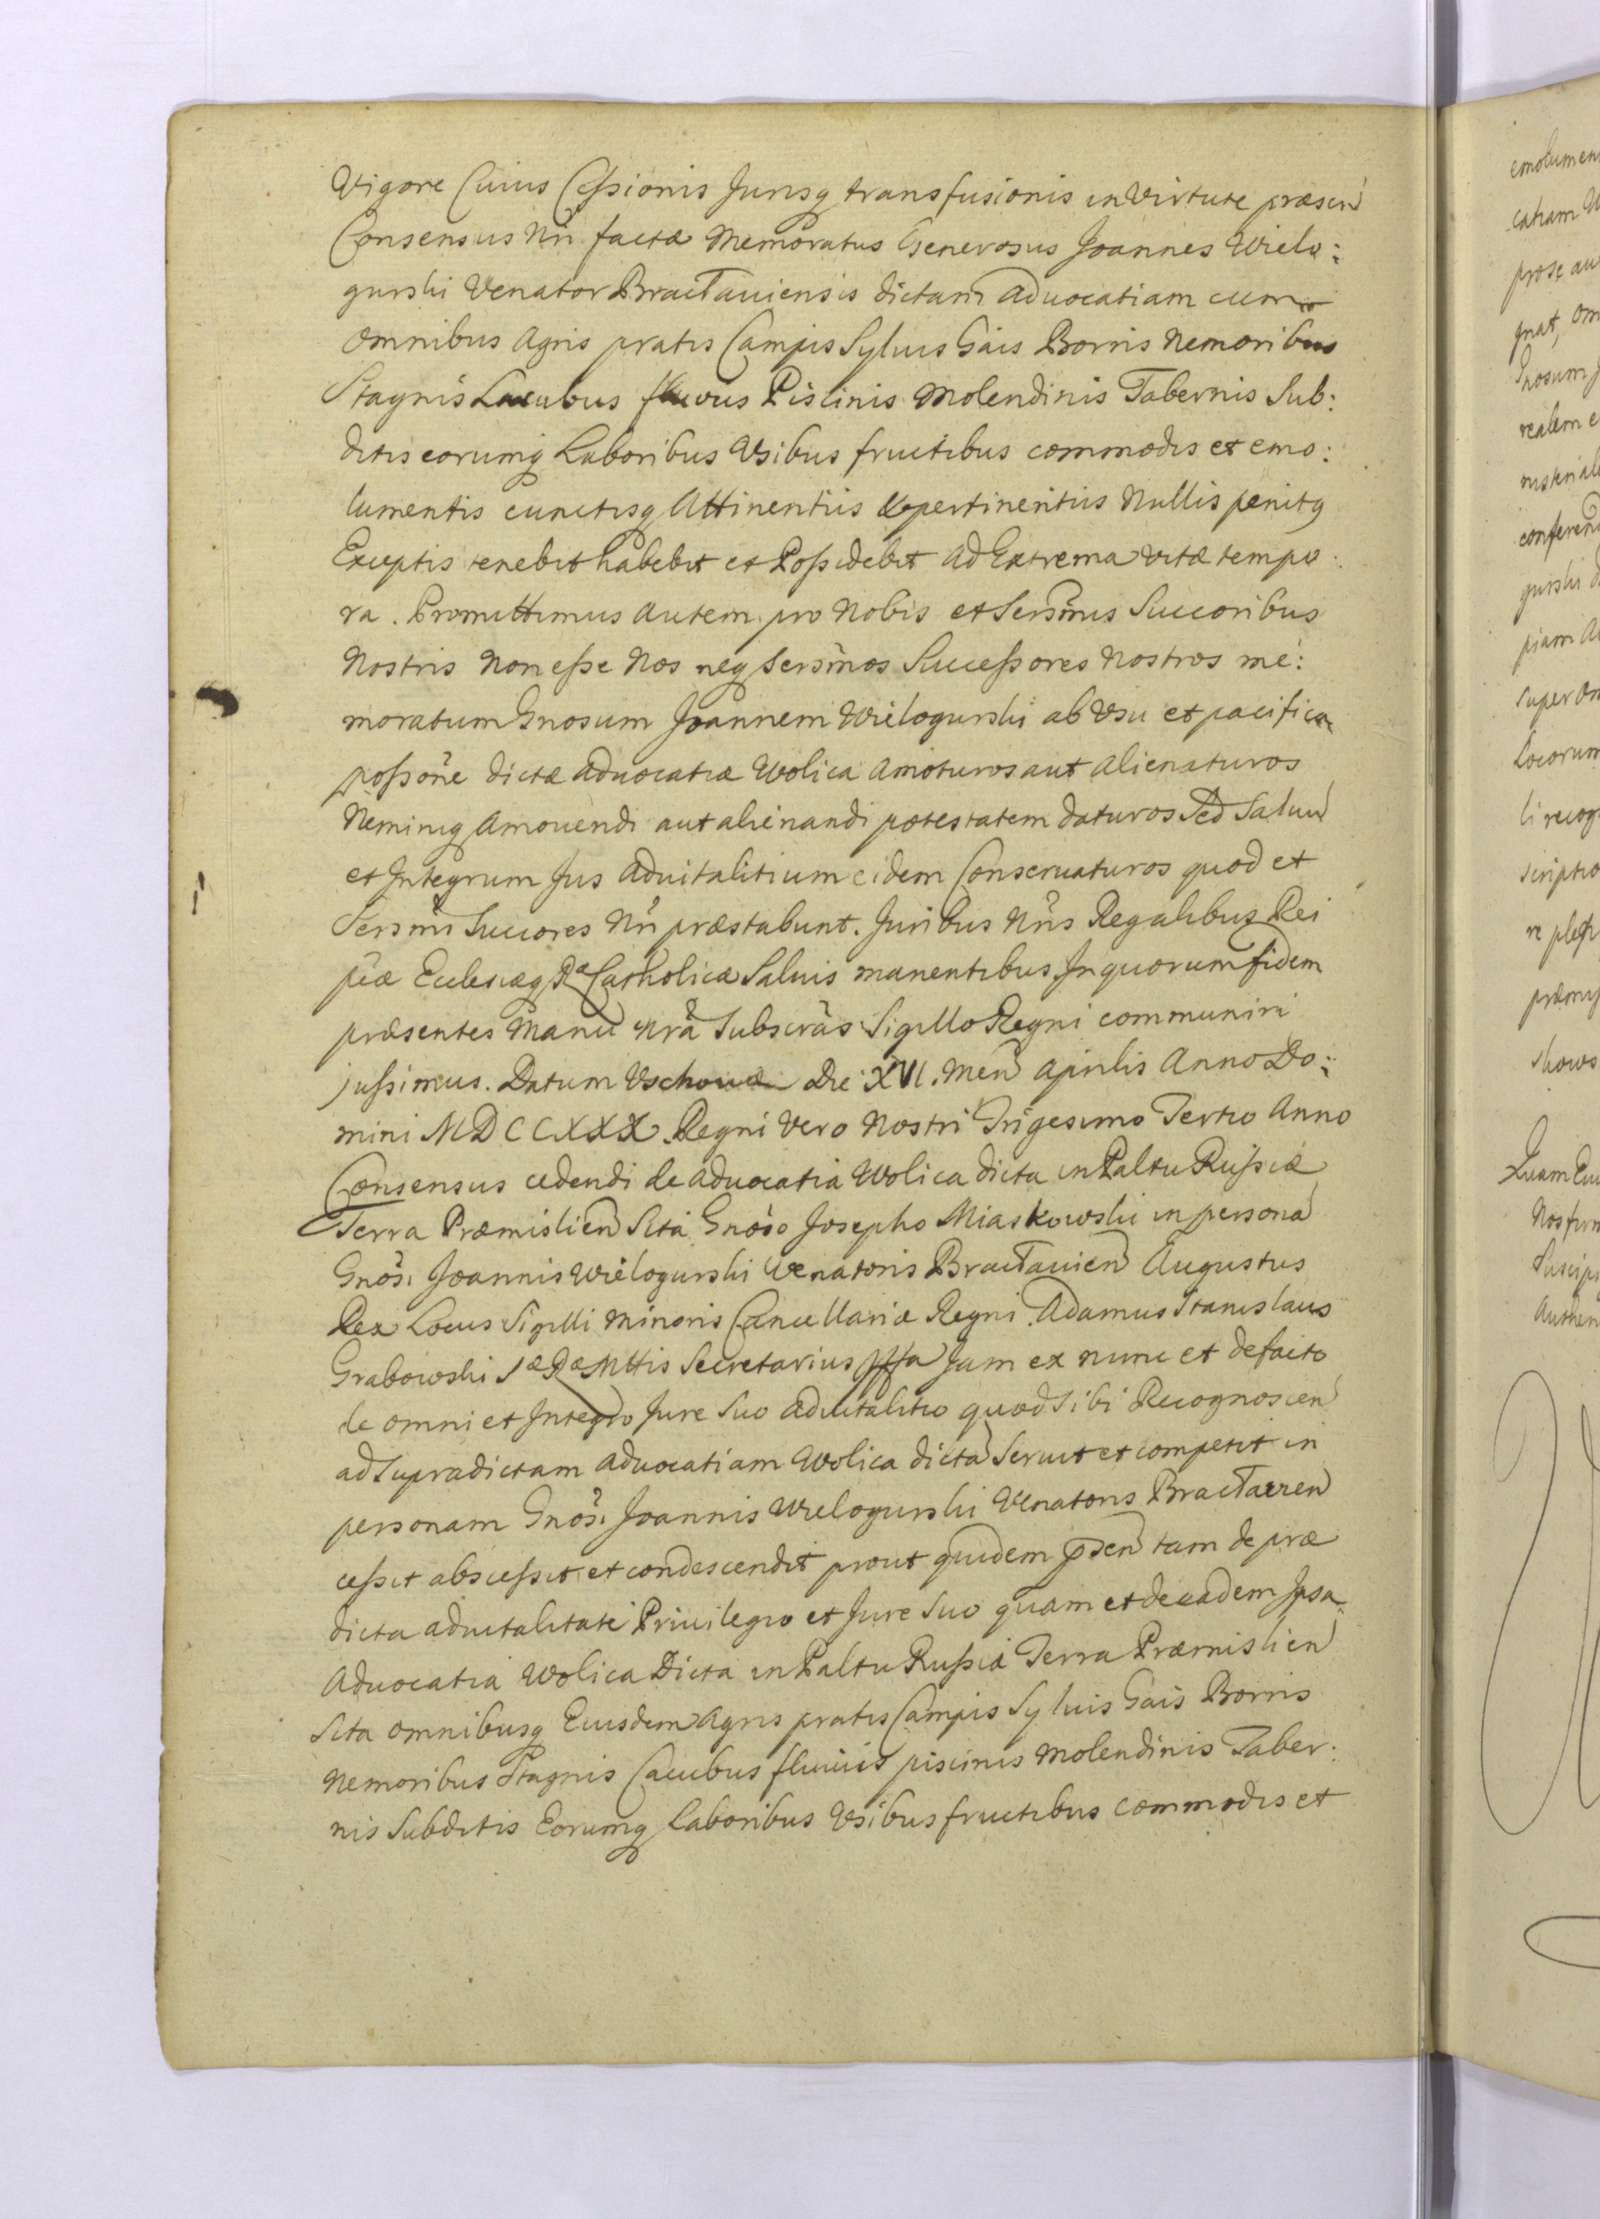 Vigore Cuius Cessionis Jurisq transfusionis in Virtute præsen
Consensus Nri factæ Memoratus Generosus Joannes Wielo:
gurski Venator Bractaviensis dictam advocatiam cum
omnibus Agris pratis Campis Sylvis Gais Borris Nemoribus
Stagnis Lacubus fluvus Piscinis Molendinis Tabernis Sub:
ditis eorumq Laboribus Usibus fructibus commodis et emo:
lumentis cunctisq Attinentiis & pertinentiis Nullis penitq
Exceptis tenebit habebit et Possidebit ad Extrema vitæ tempo:
ra. Promittimus autem pro Nobis et Sersmis Succoribus
Nostris Non esse Nos neq sersmos Successores Nostros me:
moratum Gnosum Joannem Wielogurski ab Usu et pacifica
possone dictæ advocatiæ Wolica amoturos aut alienaturos
Neminiq amovendi aut alienandi potestatem daturos Sed Salvu
et Integrum Jus advitalitium eidem Conservaturos quod et
Sersmi Succores Nri præstabunt. Juribus Nris Regalibus Rei
pcæ Ecclesiæq Dæ Catholicæ Salvis manentibus In quorum fidem
præsentes Manu nrâ Subscras Sigillo Regni communiri
jussimus. Datum Uschovæ Die XVI. Men Aprilis Anno Do:
mini MDCCXXX. Regni Vero Nostri Trigesimo Tertio Anno
Consensus cedendi de advocatia Wolica dicta in Paltu Russiæ
Terra Præmislien Sita Gnoso Josepho Miaskowski in persona
Gnosi Joannis Wielogurski Venatoris Bractavien Augustus
Rex Locus Sigilli Minoris Cancellariæ Regni. Adamus Stanislaus
Grabowski Sæ Ræ Mttis Secretarius Jam ex nunc et defacto
de omni et Integro Jure Suo advitalitio quod Sibi Recognoscen
ad Supradictam advocatiam Wolica dicta Servit et competit in
personam Gnosi Joannis Wielogurski Venatoris Bractavien
cessit abscessit et condescendit prout quidem tam de præ
dicta advitalitate Privilegio et Jure Suo quam et de eadem Ipsa
Advocatia Wolica Dicta in Paltu Russiæ Terra Præmislien
Sita omnibusq Eiusdem Agris pratis Campis Sylvis Gais Borris
Nemoribus Stagnis Lacubus fluviis piscinis Molendinis Taber:
nis Subditis Eorumq Laboribus Usibus fructibus Commodis et